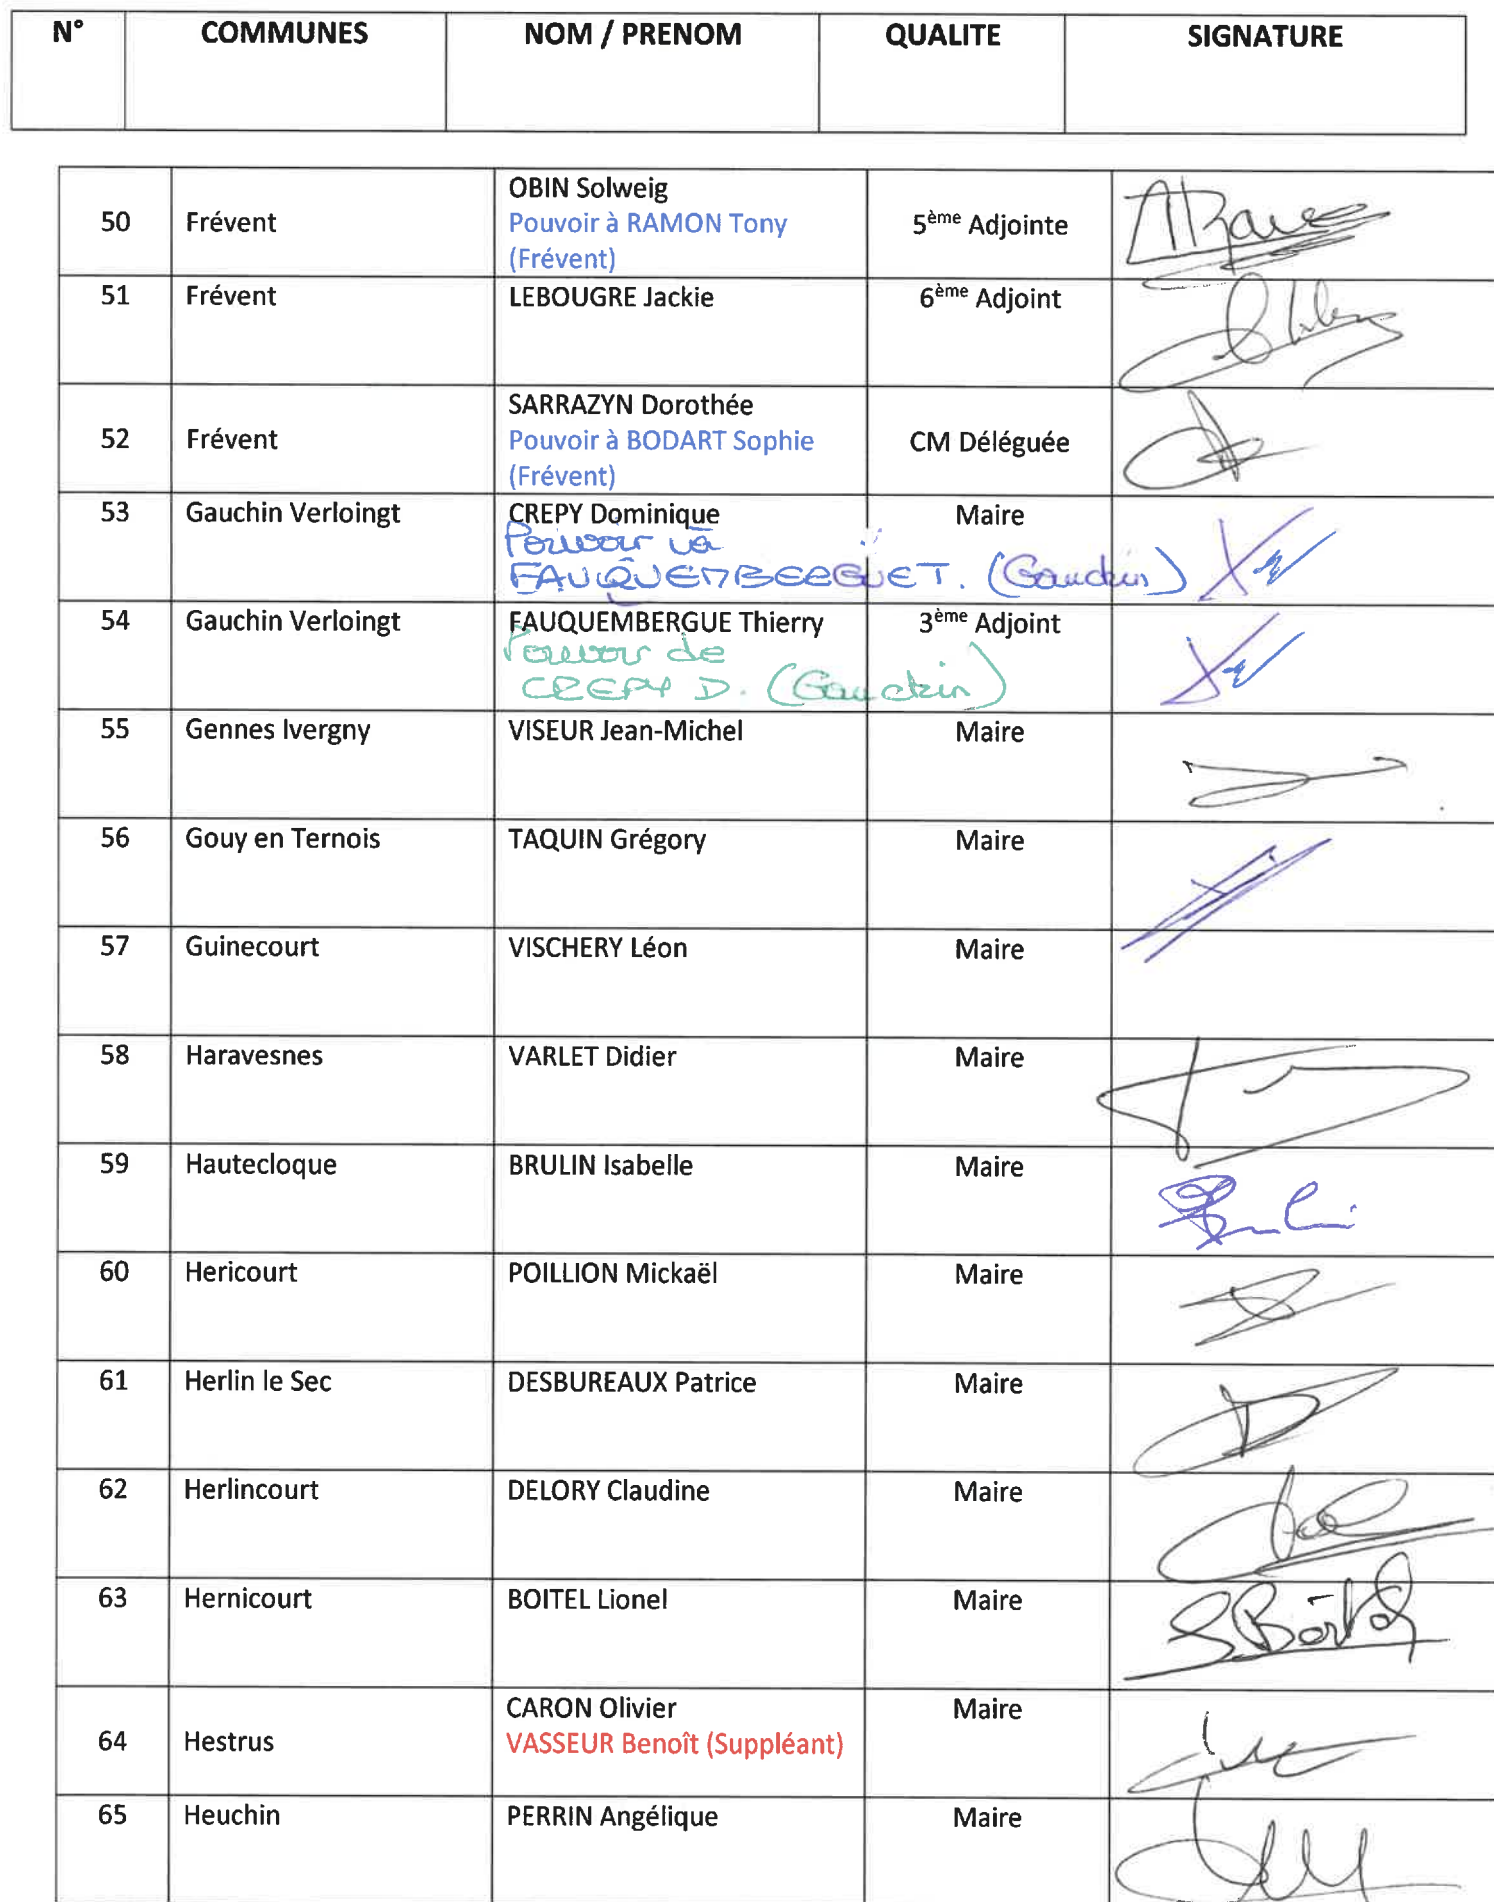 N° COMMUNES NOM / PRENOM QUALITE SIGNATURE
OBIN Solweig
50 Frévent Pouvoir à RAMON Tony 5ème Adjointe
(Frévent)
51 Frévent LEBOUGRE Jackie 6ème Adjoint
SARRAZYN Dorothée
52 Frévent Pouvoir à BODART Sophie CM Déléguée
(Frévent)
53 Gauchin Verloingt CREPY Dominique Maire
Pouvoir à
FAUQUEMBERGUE T. (Gauchin)
54 Gauchin Verloingt FAUQUEMBERGUE Thierry 3ème Adjoint
Pouvoir de
CREPY D. (Gauchin)
55 Gennes Ivergny VISEUR Jean-Michel Maire
56 Gouy en Ternois TAQUIN Grégory Maire
57 Guinecourt VISCHERY Léon Maire
58 Haravesnes VARLET Didier Maire
59 Hautecloque BRULIN Isabelle Maire
60 Hericourt POILLION Mickaël Maire
61 Herlin le Sec DESBUREAUX Patrice Maire
62 Herlincourt DELORY Claudine Maire
63 Hernicourt BOITEL Lionel Maire
CARON Olivier Maire
64 Hestrus VASSEUR Benoît (Suppléant)
65 Heuchin PERRIN Angélique Maire